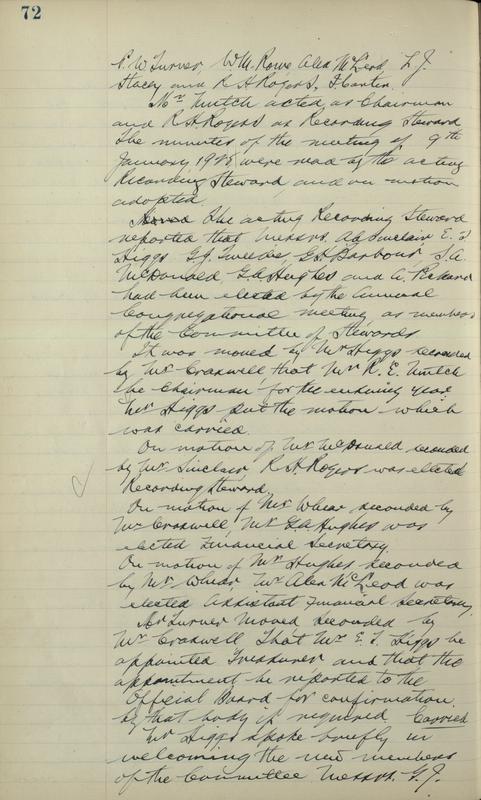 72
P. W Turner, W. M. Rowe Alex McLeod, L. J.
Stacey and R H Rogers,
Mr Mutch acted as Chairman
and R H Rogers as Recording Steward
The minutes of the meeting of 9th
January 1928 were read by the acting
Recording Steward, and on motion
adopted.
Moved The acting Recording Steward
reported that Messrs. A. J. Sinclair E. T
Higgs G. J. Tweedie, G. H. Barbour J. A.
McDonald, G. A. Hughes and A. Pickard
had been elected by the annual
Congregational meeting as members
of the Committee of Stewards
It was moved by Mr Higgs seconded
by Mr Craswell that Mr R. E. Mutch
be Chairman for the ensuing year
Mr Higgs put the motion which
was carried.
On motion of Mr McDonald, seconded
by Mr Sinclair, R. H. Rogers was elected
Recording Steward.
On motion of Mr Whear seconded by
Mr Craswell, Mr G. A Hughes was
elected Financial Secretary.
On motion of Mr Hughes seconded
by Mr. Whear, Mr Alex McLeod was
elected Assistant Financial Secretary.
Mr Turner moved seconded by
Mr Craswell That Mr E. T. Higgs be
appointed Treasurer and that the
appointment be reported to the
Official Board for confirmation
by that body if required Carried
Mr Higgs spoke briefly in
welcoming the new members
of the Committee Messrs. G. J.